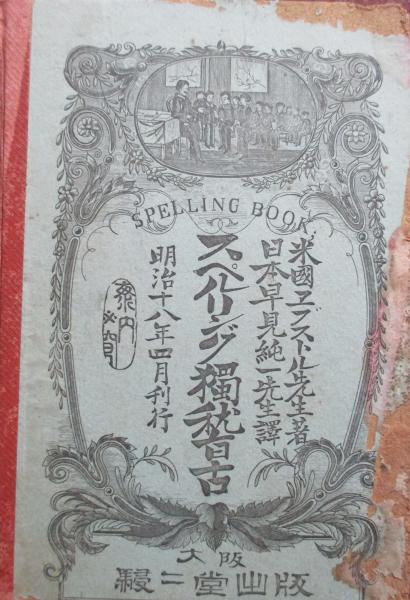 SPELLING BOOK
米國ヱブストル先生著
日本早見純一先生譯
スペルリング獨稽古
明治十八年四月刊行
大阪
駸〻堂出版